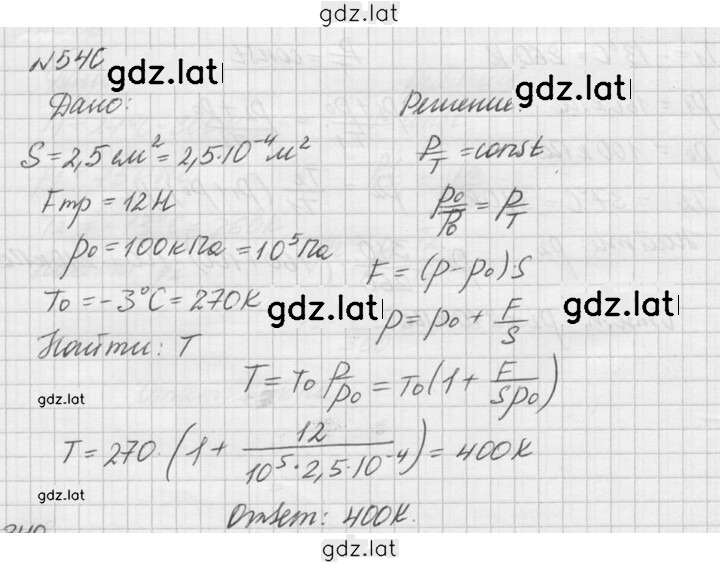 gdz.latl
N546
gdz.latl
Дано:
Решение:
S = 2,5 см² = 2,5·10⁻⁴ м²
p/T = const
Fтр = 12Н
p₀/p₀ = p/T
p₀ = 100кПа = 10⁵Па
F = (p-p₀)·S
T₀ = -3°C = 270К
gdz.latl
gdz.latl
p = p₀ + F/S
Найти: T
T = T₀ p/p₀ = T₀(1 + F/Sp₀)
gdz.latl
T = 270·(1 + 12/10⁵·2,5·10⁻⁴) = 400К
gdz.latl
Ответ: 400К.
gdz.latl